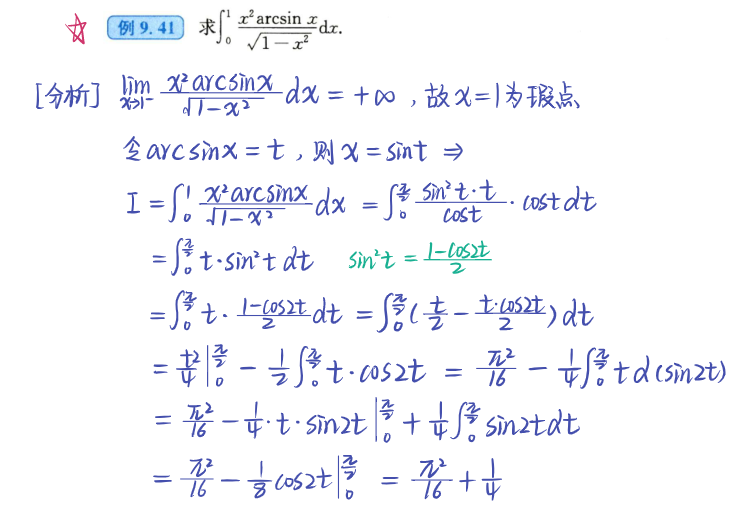 ☆ 例 9.41 求∫₀¹ x² arcsin x / √(1−x²) dx.
[分析] lim_{x→1⁻} x² arcsinx / √(1−x²) dx = +∞ , 故 x=1 为瑕点
令 arcsinx = t , 则 x = sint ⇒
I = ∫₀¹ x² arcsinx / √(1−x²) dx = ∫₀^{π/2} sin²t·t / cost · cost dt
= ∫₀^{π/2} t·sin²t dt sin²t = (1−cos2t)/2
= ∫₀^{π/2} t· (1−cos2t)/2 dt = ∫₀^{π/2} ( t/2 − t·cos2t/2 ) dt
= t²/4 |₀^{π/2} − 1/2 ∫₀^{π/2} t·cos2t = π²/16 − 1/4 ∫₀^{π/2} t d(sin2t)
= π²/16 − 1/4 · t · sin2t |₀^{π/2} + 1/4 ∫₀^{π/2} sin2t dt
= π²/16 − 1/8 cos2t |₀^{π/2} = π²/16 + 1/4